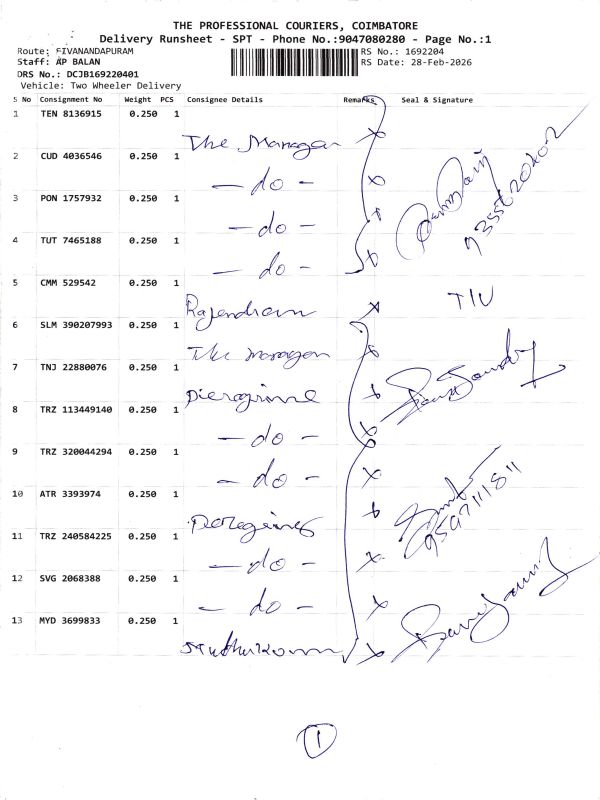 THE PROFESSIONAL COURIERS, COIMBATORE
Delivery Runsheet - SPT - Phone No.:9047080280 - Page No.:1
Route: SIVANANDAPURAM
RS No.: 1692204
Staff: AP BALAN
RS Date: 28-Feb-2026
DRS No.: DCJB169220401
Vehicle: Two Wheeler Delivery
S No Consignment No Weight PCS Consignee Details Remarks Seal & Signature
1 TEN 8136915 0.250 1
The Manager
2 CUD 4036546 0.250 1
- do -
3 PON 1757932 0.250 1
- do -
4 TUT 7465188 0.250 1
- do -
5 CMM 529542 0.250 1
Rajendran
6 SLM 390207993 0.250 1
The manager
7 TNJ 22880076 0.250 1
8 TRZ 113449140 0.250 1
- do -
9 TRZ 320044294 0.250 1
- do -
10 ATR 3393974 0.250 1
11 TRZ 240584225 0.250 1
- do -
12 SVG 2068388 0.250 1
- do -
13 MYD 3699833 0.250 1
1